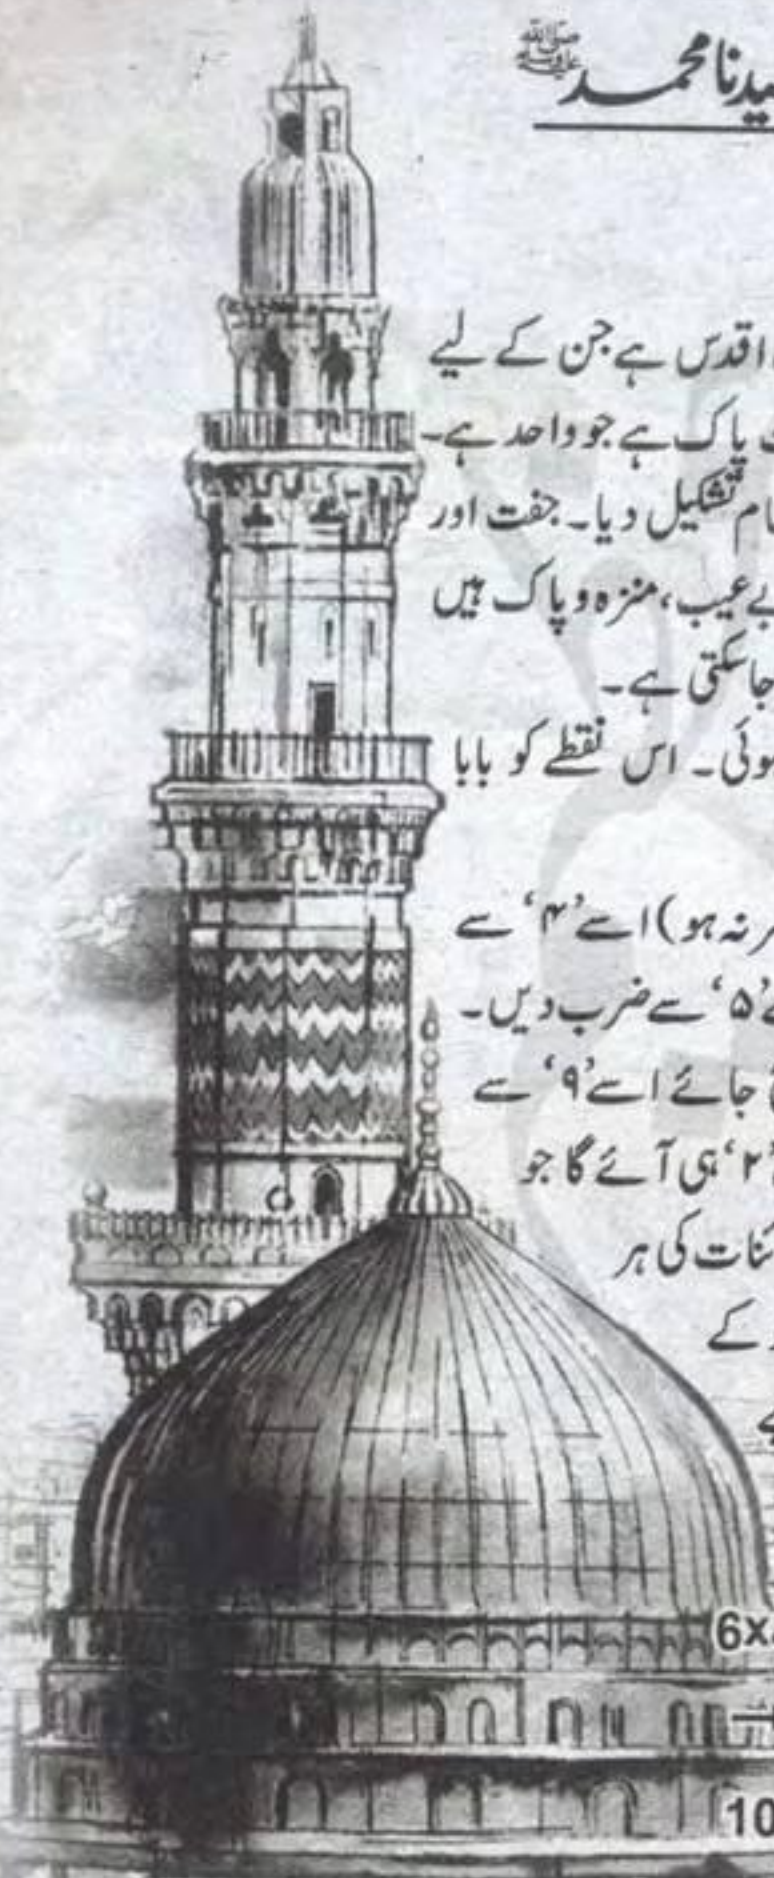 محمد ﷺ
اقدس ہے جن کے لیے
پاک ہے جو واحد ہے۔
تشکیل دیا۔ جفت اور
بے عیب، منزہ و پاک ہیں
جاسکتی ہے۔
ہوئی۔ اس نقطے کو بابا
نہ ہو) اسے ’۴‘ سے
’۵‘ سے ضرب دیں۔
جائے اسے ’۹‘ سے
’۲‘ ہی آئے گا جو
کی ہر
کے
6x
10